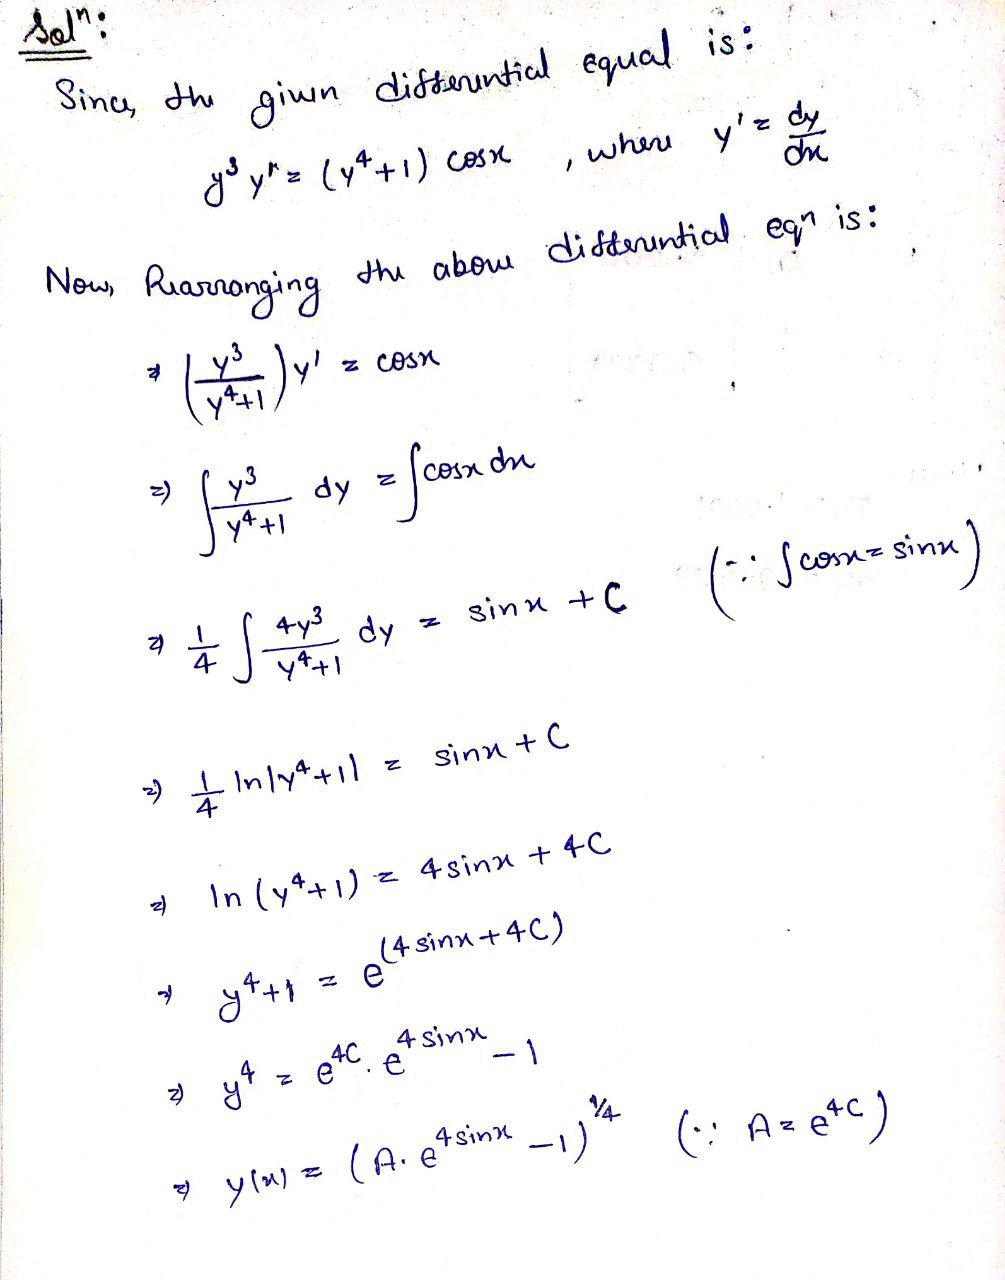 Solⁿ:
Since, the given differential equal is:
y³ y' = (y⁴+1) cosx , where y' = dy/dx
Now, Rearranging the above differential eqⁿ is:
⇒ (y³/(y⁴+1)) y' = cosx
⇒ ∫ y³/(y⁴+1) dy = ∫cosx dx
⇒ 1/4 ∫ 4y³/(y⁴+1) dy = sinx + C (∵ ∫cosx = sinx)
⇒ 1/4 ln|y⁴+1| = sinx + C
⇒ ln(y⁴+1) = 4sinx + 4C
⇒ y⁴+1 = e^(4sinx+4C)
⇒ y⁴ = e^4C . e^4sinx − 1
⇒ y(x) = (A. e^4sinx − 1)^1/4 (∵ A = e^4C)